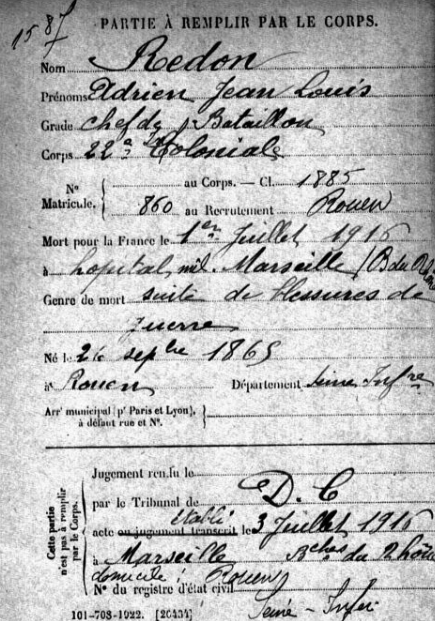 1587
PARTIE À REMPLIR PAR LE CORPS.
Nom Redon
Prénoms Adrien Jean Louis
Grade Chef de Bataillon
Corps 22e Coloniale
N° Matricule. { au Corps. — Cl. 1885
860 au Recrutement Rouen
Mort pour la France le 1er Juillet 1916
à hopital mil. Marseille (B du Rhône
Genre de mort suite de blessures de
guerre
Né le 26 sepbre 1865
à Rouen Département Seine Infre
Arrt municipal (pr Paris et Lyon), à défaut rue et N°. }
Cette partie n'est pas à remplir par le Corps.
Jugement rendu le
par le Tribunal de D. C
établi
acte ou jugement transcrit le 3 Juillet 1916
à Marseille Bches du Rhône
domicile : Rouen
N° du registre d'état civil
Seine - Infer
101-708-1922. [26434]